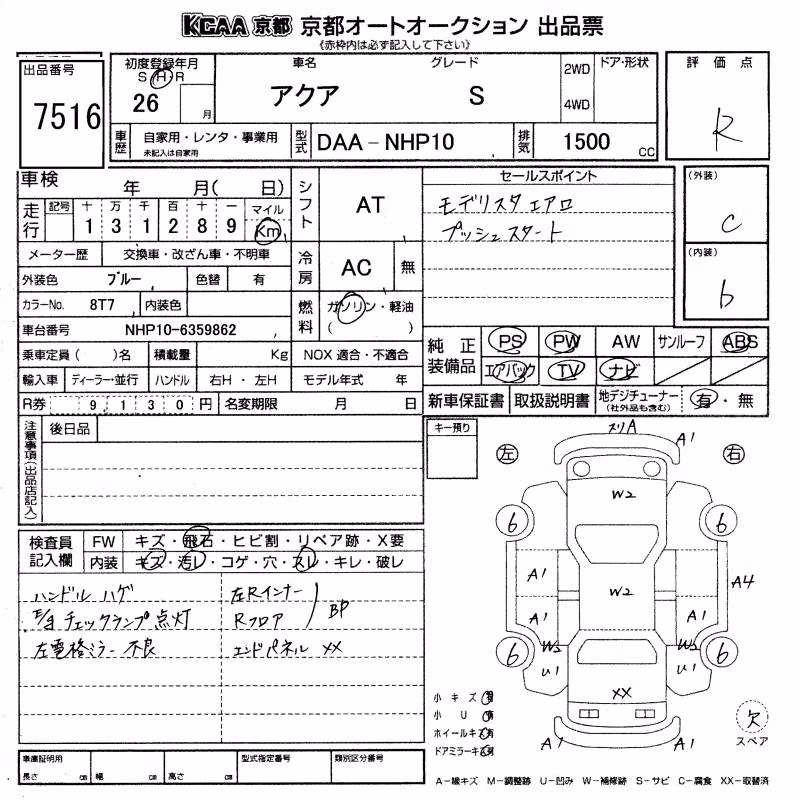 KCAA 京都 京都オートオークション 出品票
《赤枠内は必ず記入して下さい》
出品番号
7516
初度登録年月
S H R
26 月
車名
アクア
グレード
S
2WD
4WD
ドア・形状
評価点
R
車歴
自家用・レンタ・事業用
未記入は自家用
型式
DAA-NHP10
排気
1500 CC
車検 年 月( 日)
走行
記号 十 万 千 百 十 一 マイル
1 3 1 2 8 9 Km
シフト
AT
メーター歴 交換車・改ざん車・不明車
冷房
AC 無
外装色 ブルー 色替 有
カラーNo. 8T7 内装色
燃料
ガソリン・軽油
( )
車台番号 NHP10-6359862
乗車定員( )名 積載量 Kg NOX 適合・不適合
輸入車 ディーラー・並行 ハンドル 右H・左H モデル年式 年
R券 9,130円 名変期限 月 日
セールスポイント
モデリスタ エアロ
プッシュスタート
(外装)
C
(内装)
b
純正装備品
PS PW AW サンルーフ ABS
エアバック TV ナビ
新車保証書 取扱説明書 地デジチューナー (社外品も含む) 有・無
注意事項(出品店記入)
後日品
キー預り
検査員記入欄
FW キズ・飛石・ヒビ割・リペア跡・X要
内装 キズ・汚レ・コゲ・穴・スレ・キレ・破レ
ハンドル ハゲ
チェックランプ点灯
左電格ミラー 不良
左Rインナー
Rフロア
BP
エンドパネル XX
左 右
スリA
A1
W2
6 6
A1
W2
A4
A1 A1
6 6
W2
U1
W2
U1
XX
A1 A1
小キズ有
小U有
ホイールキズ有
ドアミラーキズ有
欠
スペア
車庫証明用
長さ cm 幅 cm 高さ cm
型式指定番号
類別区分番号
A-線キズ M-調整跡 U-凹み W-補修跡 S-サビ C-腐食 XX-取替済